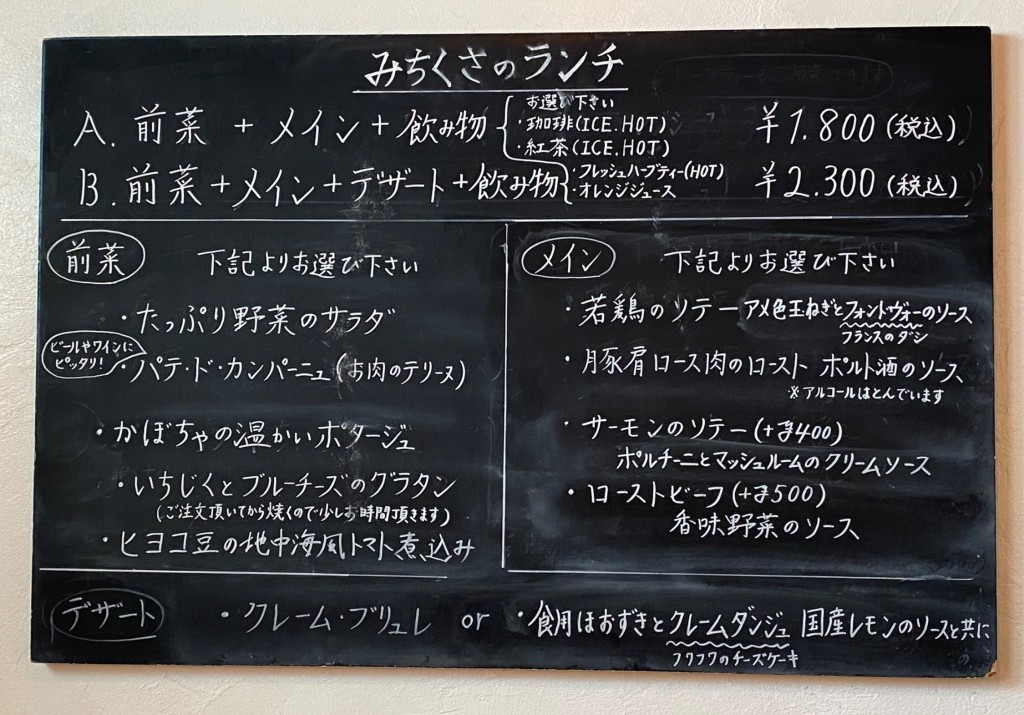 みちくさのランチ
A. 前菜 + メイン + 飲み物 ¥1.800 (税込)
お選び下さい
・珈琲(ICE.HOT)
・紅茶(ICE.HOT)
・フレッシュハーブティー(HOT)
・オレンジジュース
B. 前菜 + メイン + デザート + 飲み物 ¥2.300 (税込)
前菜 下記よりお選び下さい
・たっぷり野菜のサラダ
ビールやワインに
ピッタリ!
・パテ・ド・カンパーニュ(お肉のテリーヌ)
・かぼちゃの温かいポタージュ
・いちじくとブルーチーズのグラタン
(ご注文頂いてから焼くので少しお時間頂きます)
・ヒヨコ豆の地中海風トマト煮込み
メイン 下記よりお選び下さい
・若鶏のソテー アメ色玉ねぎとフォンドヴォーのソース
フランスのダシ
・豚肩ロース肉のロースト ポルト酒のソース
※アルコールはとんでいます
・サーモンのソテー(+¥400)
ポルチーニとマッシュルームのクリームソース
・ローストビーフ(+¥500)
香味野菜のソース
デザート ・クレーム・ブリュレ or ・食用ほおずきとクレームダンジュ 国産レモンのソースと共に
フワフワのチーズケーキ